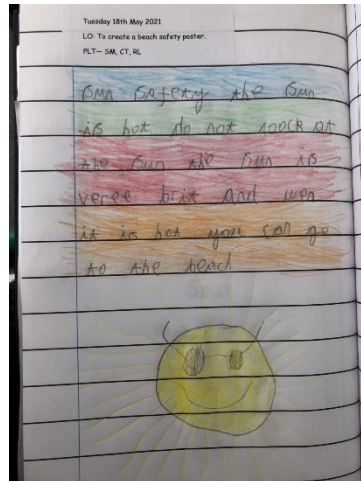 Tuesday 18th May 2021
LO: To create a beach safety poster.
PLT— SM, CT, RL
Sun Safety the Sun
is hot do not loock at
the Sun the Sun is
veree brit and wen
it is hot you can go
to the beach